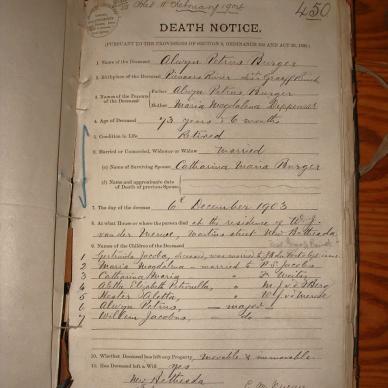 Filed 11 February 1904
450
DEATH NOTICE.
(PURSUANT TO THE PROVISIONS OF SECTION 9, ORDINANCE 104 AND ACT
1. Name of the Deceased Alwyn Petrus Burger
2. Birthplace of the Deceased River
3. Names of the Parents of the Deceased Father Alwyn Petrus Burger
Mother Maria Magdalena
4. Age of Deceased 73 years & 6 months
5. Condition in Life Retired
6. Married or Unmarried, Widower or Widow Married
(c) Name of Surviving Spouse Catharina Maria Burger
(d) Name and approximate date of Death of previous Spouse
7. The day of the decease 6th December 1903
8. At what House or where the person died at the residence of W. J.
van der Merwe, Martins street New Bethesda
9. Names of the Children of the Deceased
1 Gertruida Jacoba, was married to
2 Maria Magdalena - married to P. S. Jacobs
3 Catharina Maria
4 Aletta Elizabeth Petronella, M. J. v d Berg
5 Hester Aletta, W. J. v d Merwe
6 Alwyn Petrus, - major
7 Willem Jacobus, - do
10. Whether Deceased has left any Property movable & immovable
11. Has Deceased left a Will yes
New Bethesda